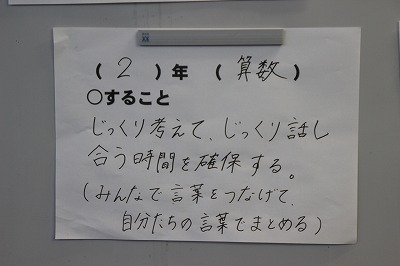 (2)年 (算数)
○すること
じっくり考えて、じっくり話し
合う時間を確保する。
(みんなで言葉をつなげて、
自分たちの言葉でまとめる)